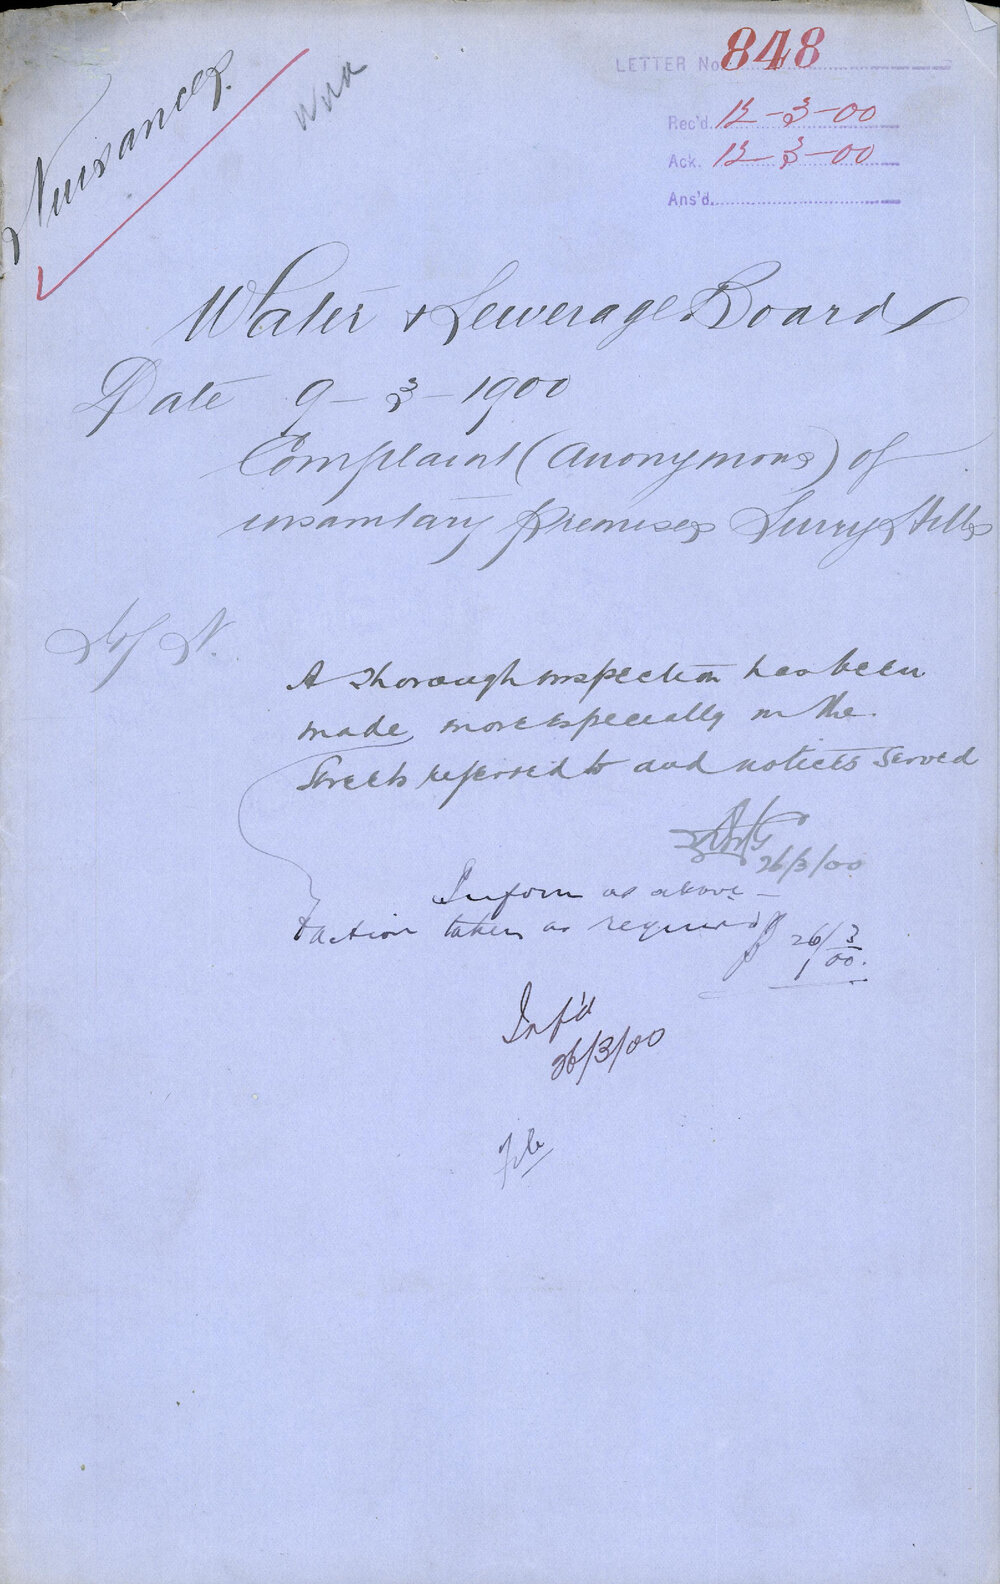 Nuisances.
LETTER No. 848
Rec'd. 12-3-00
Ack. 12-3-00
Ans'd.
Water & Sewerage Board
Date 9-3-1900
Complaint (anonymous) of
insanitary premises Surry Hills
A thorough inspection has been
made more especially in the
Streets referred to and notices served
26/3/00
Inform as above -
& action taken as required
26/3/00.
Inf'd
26/3/00
File